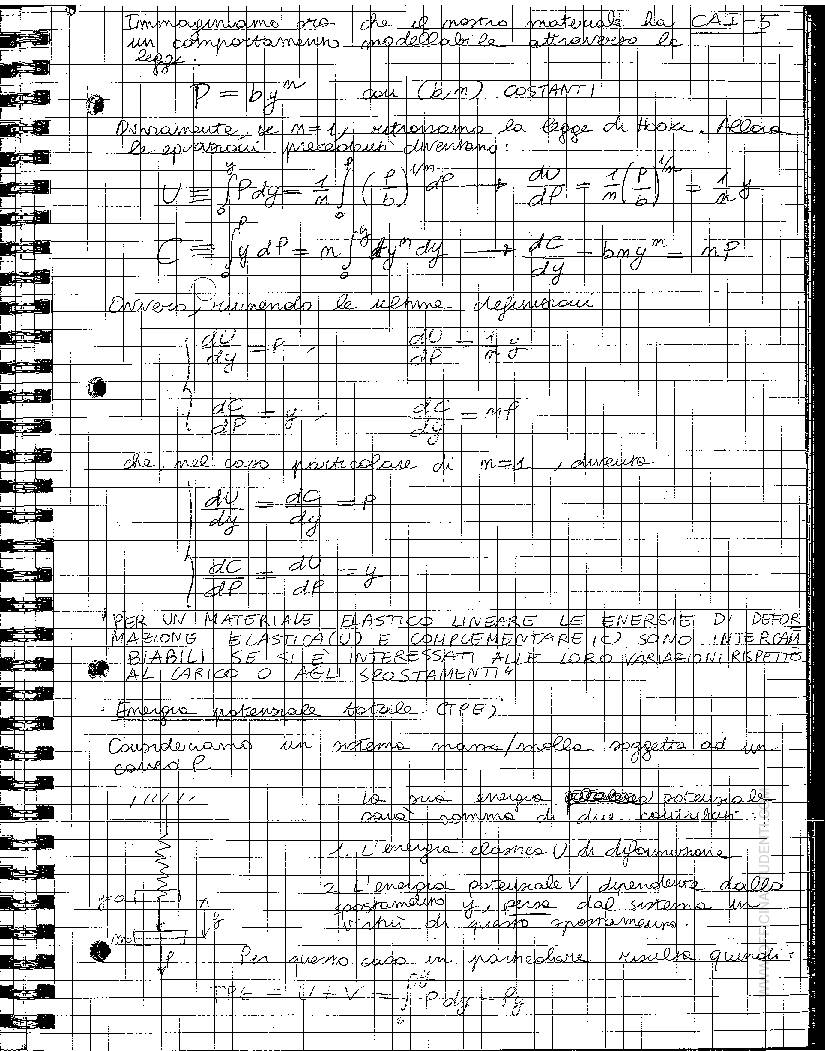 Immaginiamo ora che il nostro materiale ha CAI-5
un comportamento modellabile attraverso la
legge:
P = by^n con (b,n) COSTANTI
Ovviamente, se n=1, ritroviamo la legge di Hooke. Allora
le equazioni precedenti diventano:
U ≡ ∫₀^y P dy = 1/n ∫₀^P (P/b)^{1/n} dP → dU/dP = 1/n (P/b)^{1/n} = 1/n y
C ≡ ∫₀^P y dP = n ∫₀^y by^n dy → dC/dy = bny^n = nP
Ovvero, riunendo le ultime definizioni
dU/dy = P , dU/dP = 1/n y
dC/dP = y , dC/dy = nP
che, nel caso particolare di n=1, diventa
dU/dy = dC/dy = P
dC/dP = dU/dP = y
"PER UN MATERIALE ELASTICO LINEARE LE ENERGIE DI DEFOR
MAZIONE ELASTICA (U) E COMPLEMENTARE (C) SONO INTERCAM
BIABILI SE SI È INTERESSATI ALLE LORO VARIAZIONI RISPETTO
AL CARICO O AGLI SPOSTAMENTI"
· Energia potenziale totale (TPE)
Consideriamo un sistema massa/molla soggetto ad un
carico P.
La sua energia potenziale
sarà somma di due contributi:
1. L'energia elastica U di deformazione
2. L'energia potenziale V dipendente dallo
spostamento y, persa dal sistema in
virtù di questo spostamento.
y
P
Per questo caso in particolare risulta quindi:
TPE = U + V = ∫₀^y P dy - Py